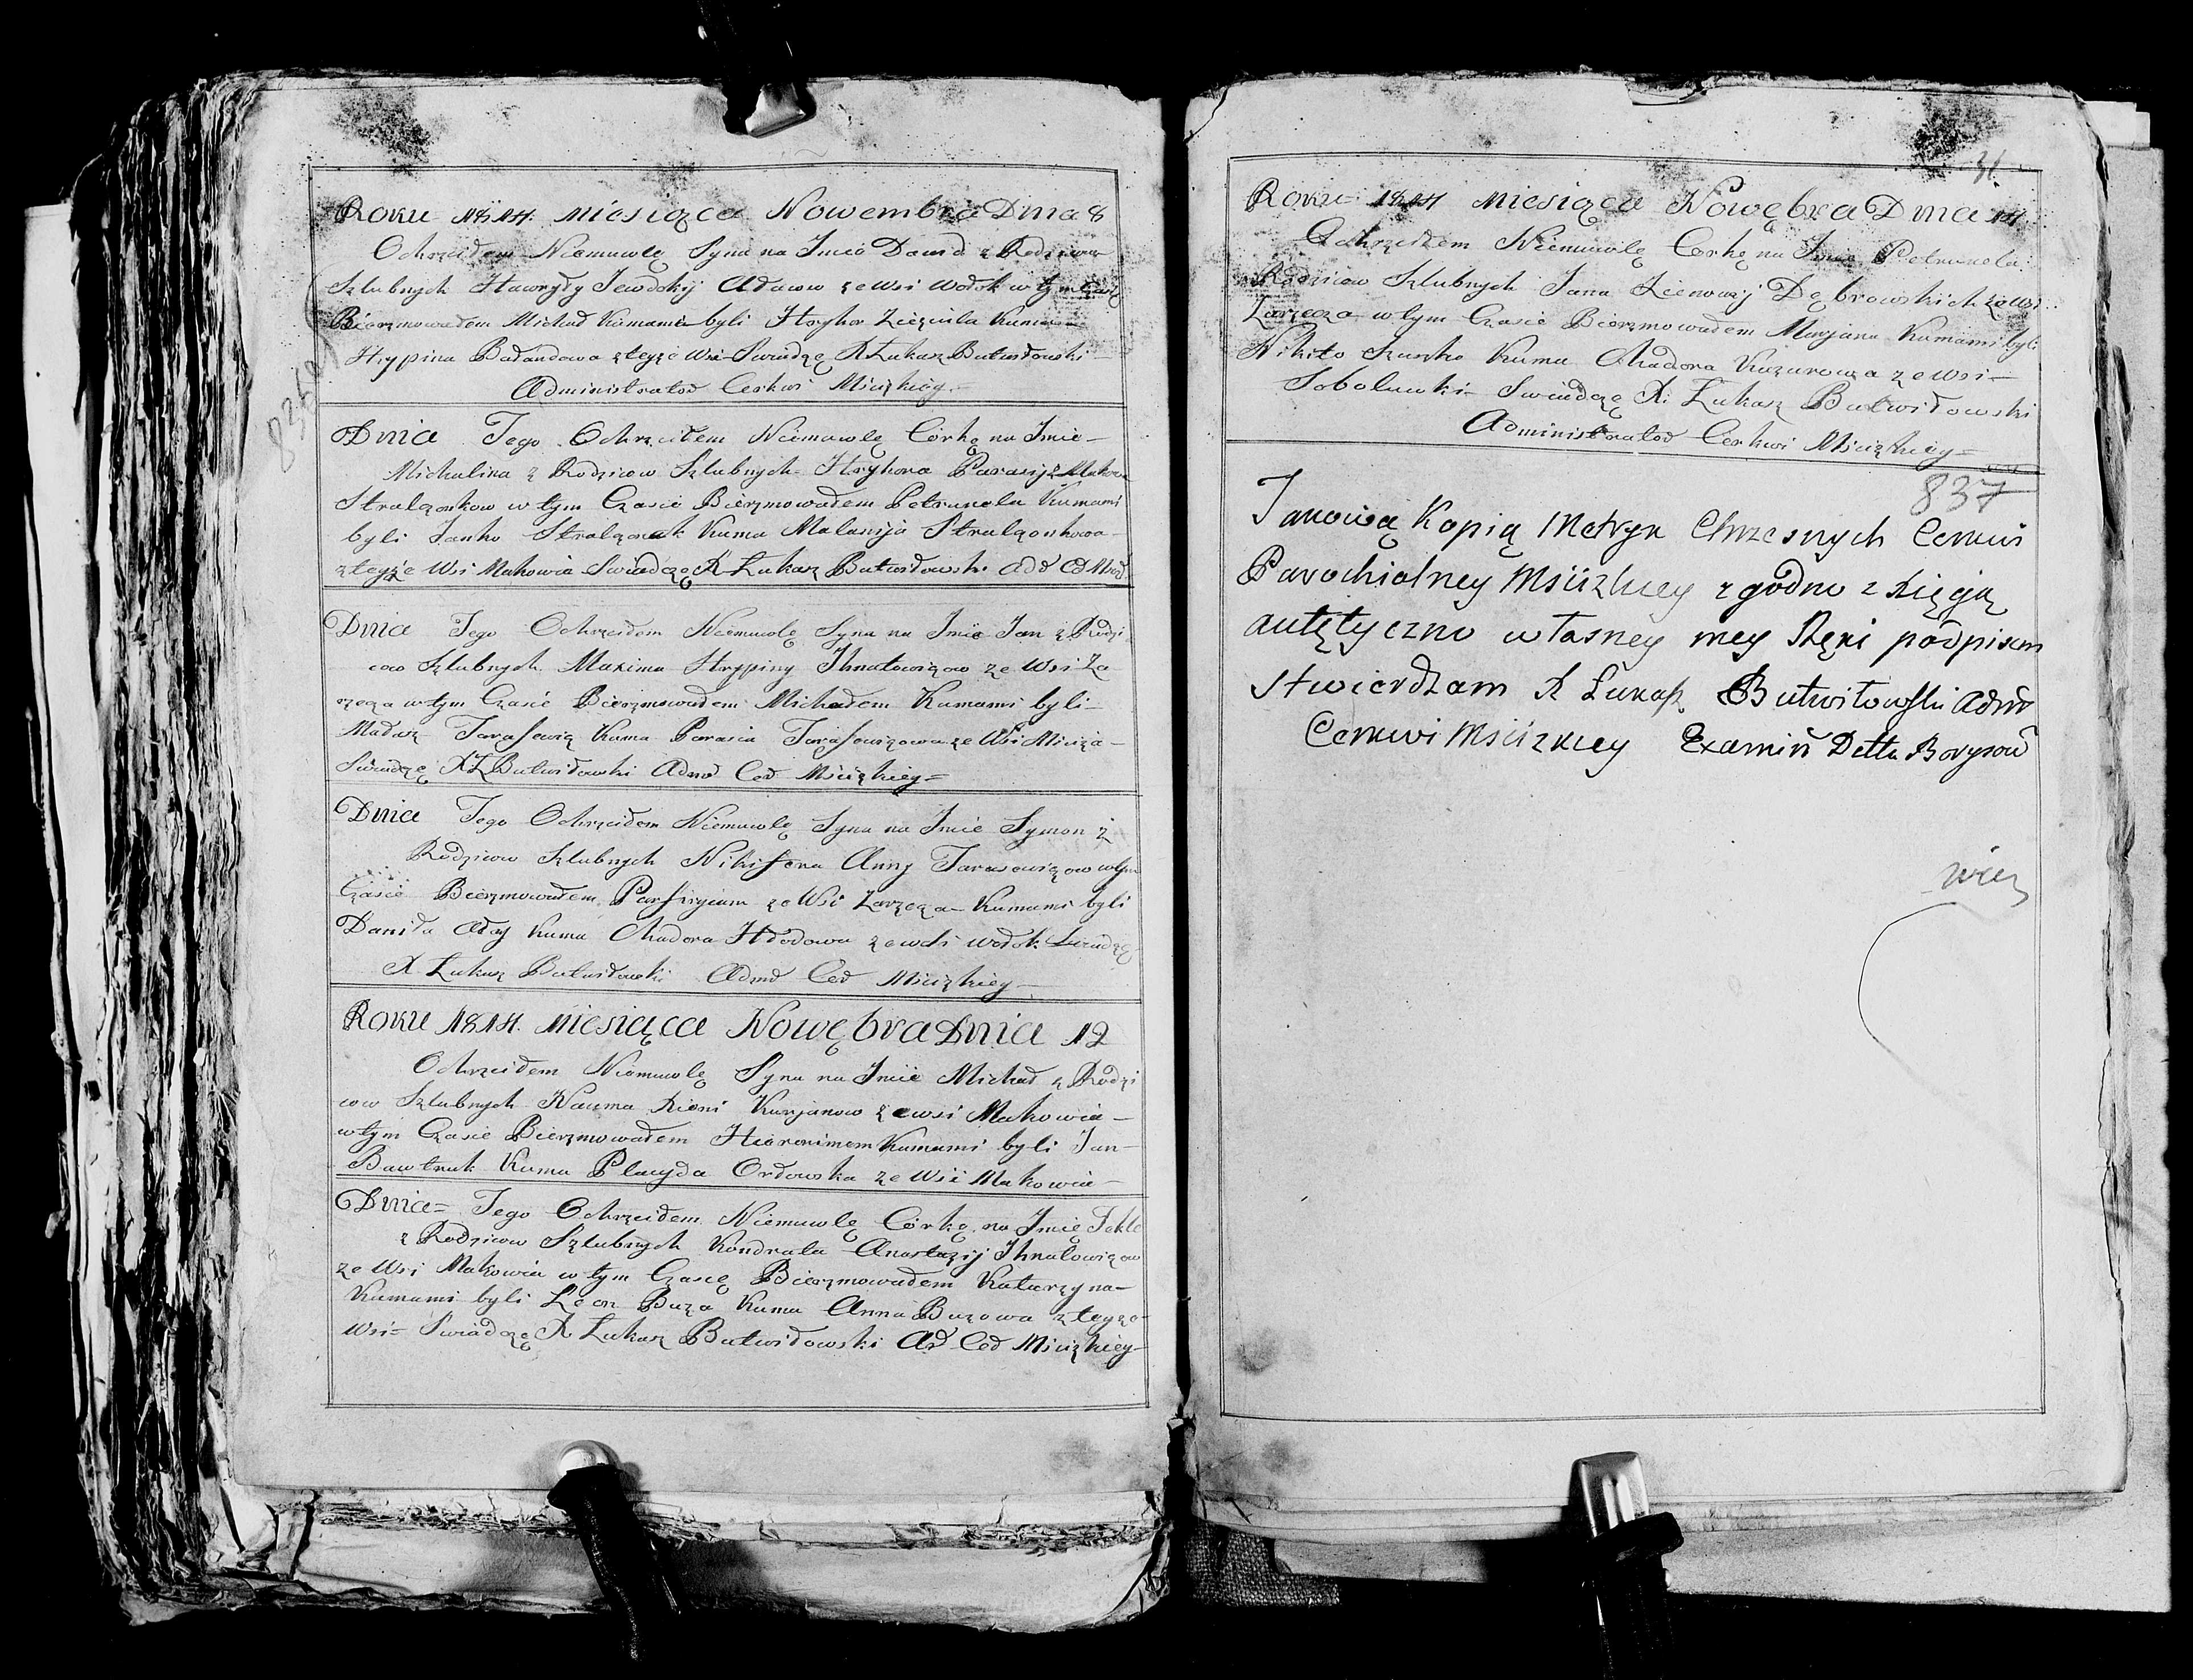 Roku 1814. Miesiąca Nowembra Dnia 8
Ochrzciłem Niemuwlę Syna na Imie Dawid z Rodzicow
Szlubnych Hawryły Jewdokij Adamow ze Wsi Wołok w tym Czasie
Bierzmowałem Michał Kumami byli Hryhor Kuma
Hrypina Bałandowa z teyże Wsi Swiadczę X Łukasz Butwiłowski
Administrator Cerkwi Mścizkiey
836
Dnia Tego Ochrzciłem Niemuwlę Córkę na Imie
Michalina z Rodzicow Szlubnych Hryhora Parasij z Makowia
Stralczonkow w tym Czasie Bierzmowałem Petrunela Kumami
byli Janko Stralczonek Kuma Malanija Stralczonkowa
z teyże Wsi Makowia Swiadczę X Łukasz Butwiłowski
Dnia Tego Ochrzciłem Niemuwlę Syna na Imie Jan z Rodzi
cow Szlubnych Maxima Hrypiny Ihnatowiczow ze Wsi Za
rzecza w tym Czasie Bierzmowałem Michałem Kumami byli
Tarasewicz Kuma Parasia Tarasewiczowa ze Wsi Mściża
Swiadczę X Ł Butwiłowski Admr Cer Mścizkiey
Dnia Tego Ochrzciłem Niemuwlę Syna na Imie Symon z
Rodzicow Szlubnych Nikifora Anny Tarasewiczow w tym
Czasie Bierzmowałem Parfirjium ze Wsi Zarzecza Kumami byli
Daniła Aday Kuma Chadora Hłodowa ze wsi Wołok Swiadczę
X Łukasz Butwiłowski Admr Cer Mścizkiey
Roku 1814. Miesiąca Nowębra Dnia 12
Ochrzciłem Niemuwlę Syna na Imie Michał z Rodzi
cow Szlubnych Nauma Xieni Kurjanow ze wsi Makowia
w tym Czasie Bierzmowałem Hieronimem Kumami byli Jan
Bawtruk Kuma Placyda Orłowska ze Wsi Makowia
Dnia Tego Ochrzciłem Niemuwlę Córkę na Imię Tekle
z Rodzicow Szlubnych Kondrata Anastazij Ihnatowiczow
ze Wsi Makowia w tym Czasię Bierzmowałem Katarzyna
Kumami byli Leon Buza Kuma Anna Buzowa z teyże
Wsi Swiadczę X Łukasz Butwiłowski Ad Cer Mścizkiey
31
Roku 1814 Miesiąca Nowębra Dnia 14
Ochrzciłem Niemuwlę Corkę na Imie Petrunela
Rodzicow Szlubnych Jana Zienowij Dębrowskich ze Wsi
Zarzecza w tym Czasie Bierzmowałem Marjana Kumami byli
Nikito Szuszko Kuma Chadora Kazurowa ze Wsi
Sobolewki Swiadczę X. Łukasz Butwiłowski
Administrator Cerkwi Mścizkiey
837
Takową Kopią Metryk Chrzesnych Cerkwi
Parochialney Mścizkiey zgodno z Xięgą
autętyczno własney mey Ręki podpisem
stwierdzam X Łukasz Butwiłowski Admr
Cerkwi Mścizkiey Examin Dettu Borysow